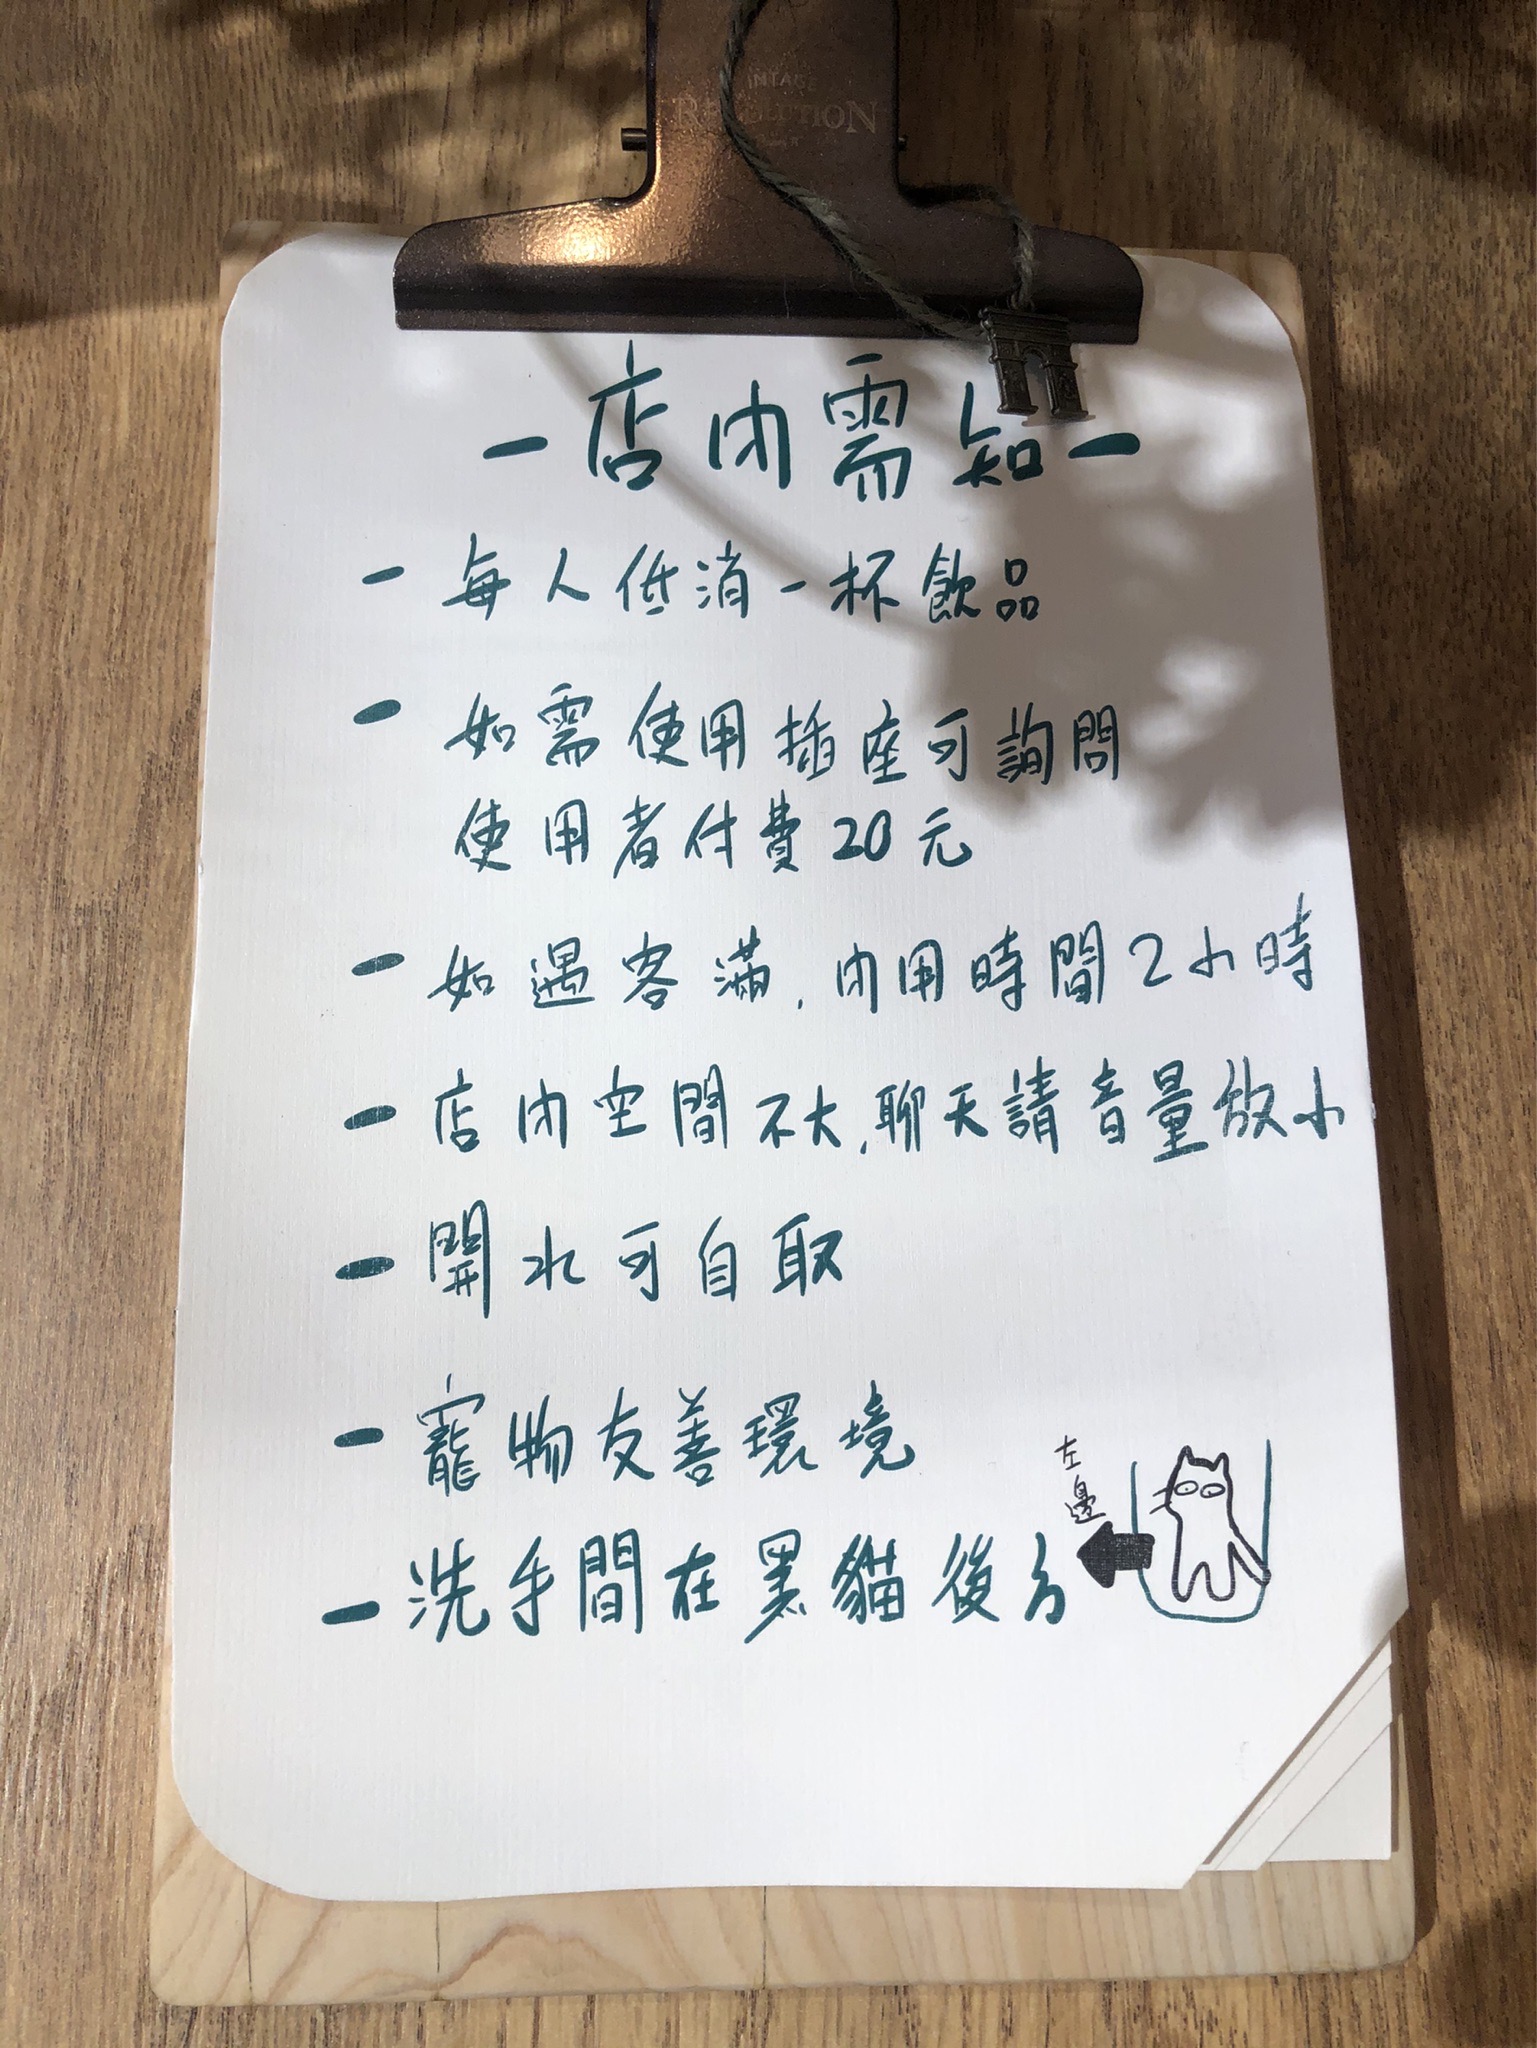 VINTAGE
REVOLUTION
-店內需知-
- 每人低消一杯飲品
- 如需使用插座可詢問
使用者付費20元
- 如遇客滿,內用時間2小時
- 店內空間不大,聊天請音量放小
- 開水可自取
- 寵物友善環境
- 洗手間在黑貓後方
左邊